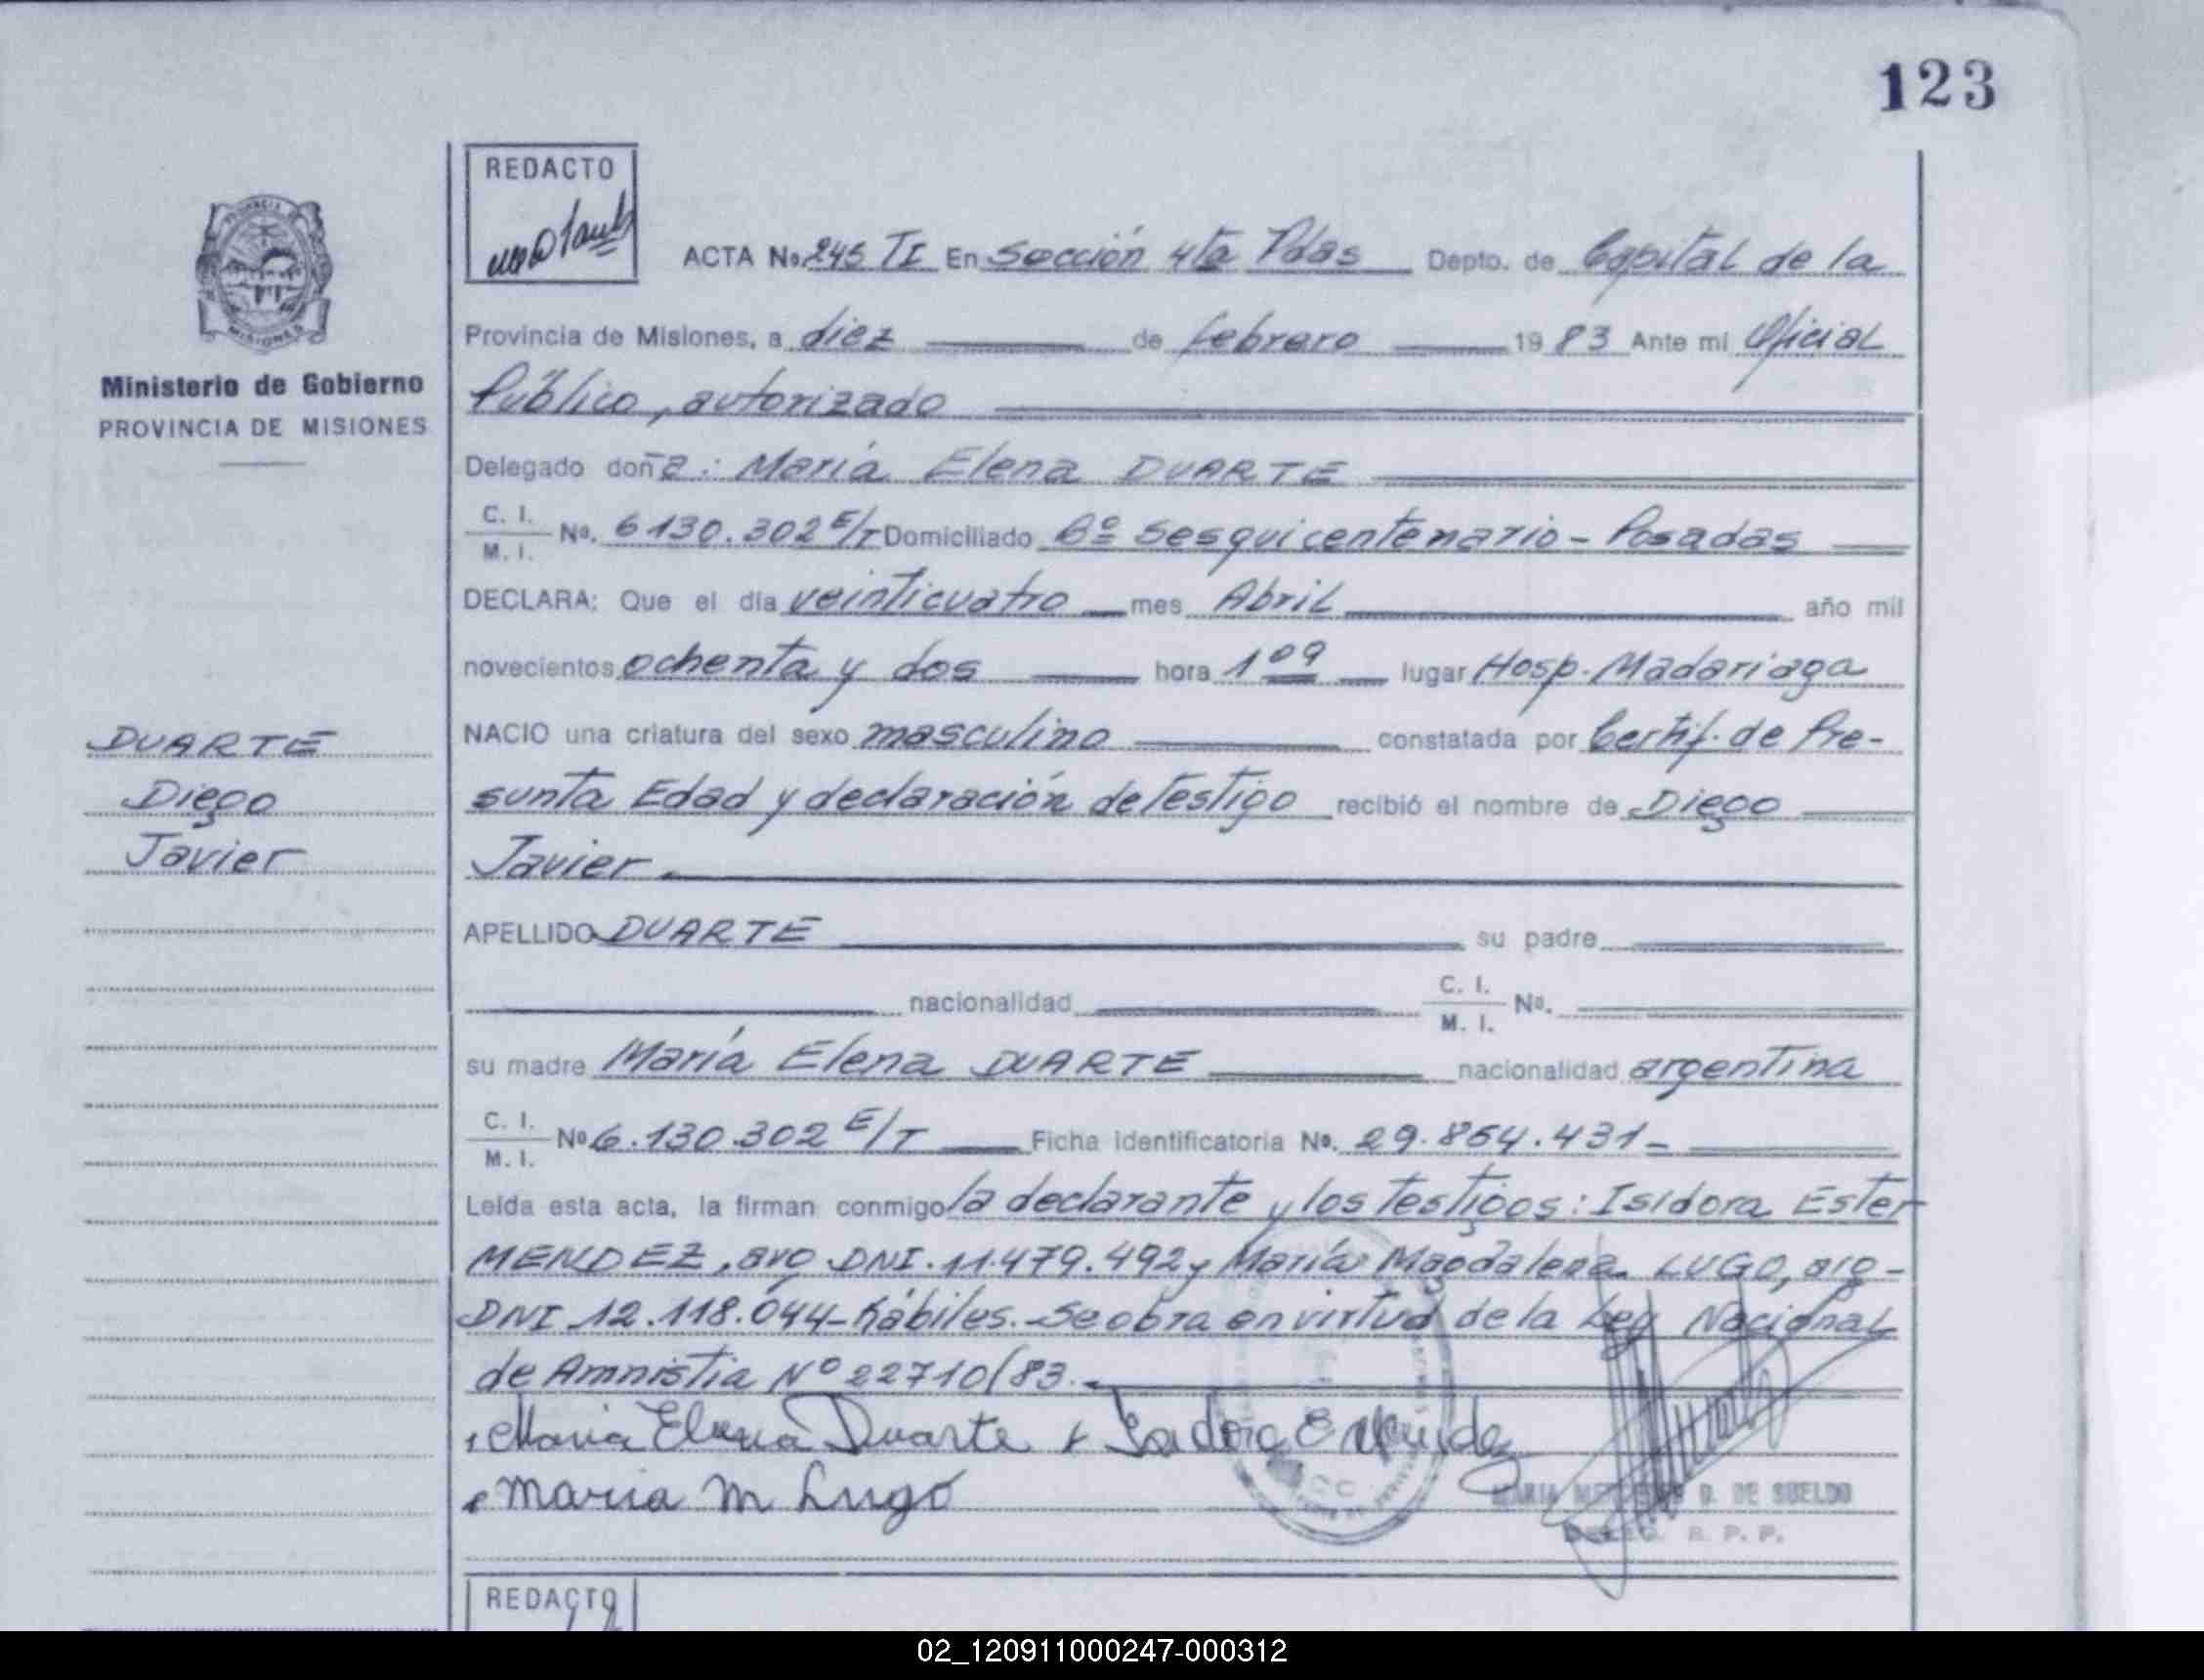 123
REDACTO
ACTA No. 245 TI En Sección 4ta Pdas Depto. de Capital de la
Provincia de Misiones, a diez de febrero 1983 Ante mi Oficial
Público, autorizado
Delegado doña: María Elena DUARTE
C. I. / M. I. No. 6130.302 E/T Domiciliado Bº Sesquicentenario - Posadas
DECLARA: Que el día veinticuatro mes Abril año mil
novecientos ochenta y dos hora 1 09 lugar Hosp. Madariaga
NACIO una criatura del sexo masculino constatada por Certif. de Pre-
sunta Edad y declaración de testigo recibió el nombre de Diego
Javier.
APELLIDO DUARTE su padre
nacionalidad C. I. / M. I. No.
su madre María Elena DUARTE nacionalidad argentina
C. I. / M. I. No 6.130.302 E/T Ficha identificatoria No. 29.864.431-
Leída esta acta, la firman conmigo la declarante y los testigos: Isidora Ester
MENDEZ, arg. DNI. 11.479.492 y María Magdalena LUGO, arg-
DNI 12.118.044- hábiles.- Se obra en virtud de la Ley Nacional
de Amnistia Nº 22710/83.-
Maria Elena Duarte
Maria M Lugo
D. DE SUELDO
R. P. P.
PROVINCIA DE
MISIONES
Ministerio de Gobierno
PROVINCIA DE MISIONES
DUARTE
Diego
Javier
REDACTO
02_120911000247-000312